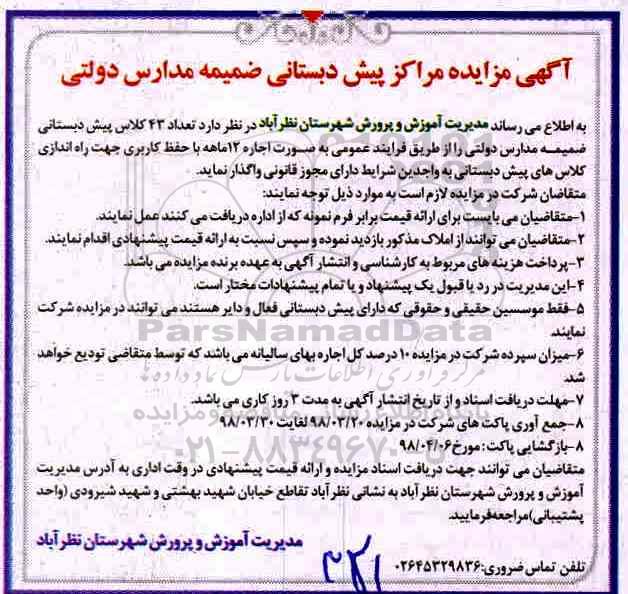 آگهی مزایده مراکز پیش دبستانی ضمیمه مدارس دولتی
به اطلاع می رساند مدیریت آموزش و پرورش شهرستان نظرآباد در نظر دارد تعداد ۴۳ کلاس پیش دبستانی
ضمیمه مدارس دولتی را از طریق فرایند عمومی به صورت اجاره ۱۲ماهه با حفظ کاربری جهت راه اندازی
کلاس های پیش دبستانی به واجدین شرایط دارای مجوز قانونی واگذار نماید.
متقاضان شرکت در مزایده لازم است به موارد ذیل توجه نمایند:
۱-متقاضیان می بایست برای ارائه قیمت برابر فرم نمونه که از اداره دریافت می کنند عمل نمایند.
۲-متقاضیان می توانند از املاک مذکور بازدید نموده و سپس نسبت به ارائه قیمت پیشنهادی اقدام نمایند.
۳-پرداخت هزینه های مربوط به کارشناسی و انتشار آگهی به عهده برنده مزایده می باشد.
۴-این مدیریت در رد یا قبول یک پیشنهاد و یا تمام پیشنهادات مختار است.
۵-فقط موسسین حقیقی و حقوقی که دارای پیش دبستانی فعال و دایر هستند می توانند در مزایده شرکت
نمایند.
ParsNamadData
۶-میزان سپرده شرکت در مزایده ۱۰ درصد کل اجاره بهای سالیانه می باشد که توسط متقاضی تودیع خواهد
شد.
مرکز فرآوری اطلاعات پارس نماد داده ها
۷-مهلت دریافت اسناد و از تاریخ انتشار آگهی به مدت ۳ روز کاری می باشد.
پایگاه اطلاع رسانی مناقصه و مزایده
۸-جمع آوری پاکت های شرکت در مزایده ۹۸/۰۳/۲۰ لغایت ۹۸/۰۳/۳۰
۰۲۱-۸۸۳۴۹۶۷۰-۵
۸-بازگشایی پاکت: مورخ ۹۸/۰۴/۰۶
متقاضیان می توانند جهت دریافت اسناد مزایده و ارائه قیمت پیشنهادی در وقت اداری به آدرس مدیریت
آموزش و پرورش شهرستان نظرآباد به نشانی نظرآباد تقاطع خیابان شهید بهشتی و شهید شیرودی (واحد
پشتیبانی)مراجعه‌فرمایید.
مدیریت آموزش و پرورش شهرستان نظرآباد
تلفن تماس ضروری:۰۲۶۴۵۳۲۹۸۳۶